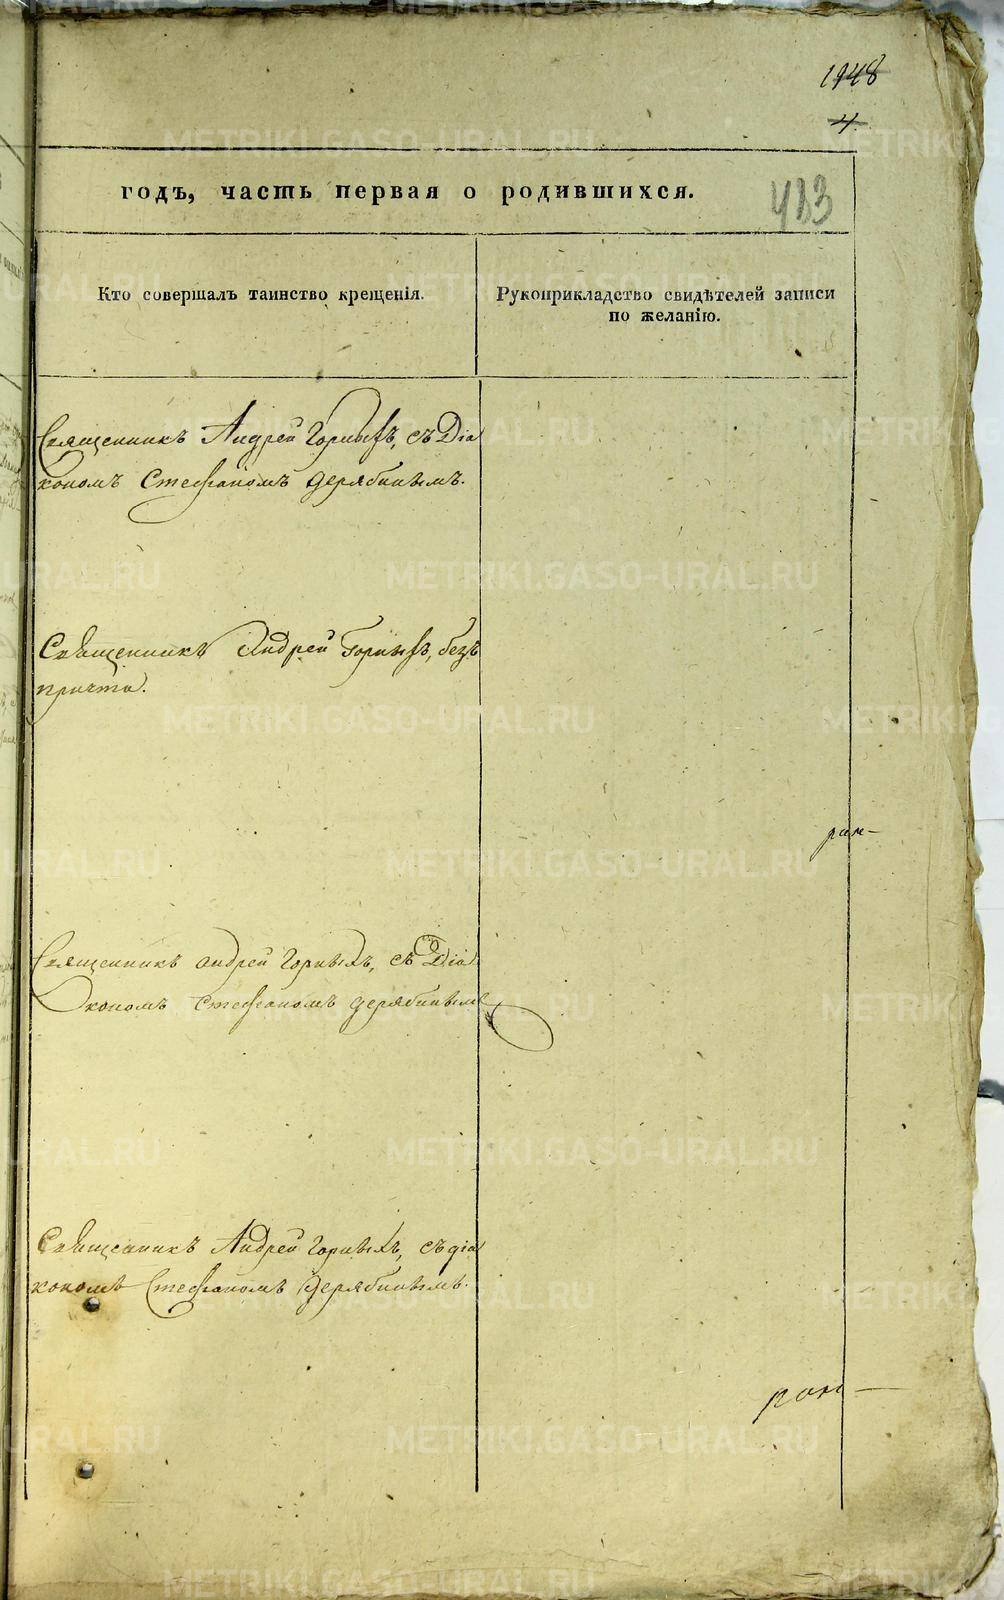 1948
4
годъ, часть первая о родившихся.
483
Кто совершалъ таинство крещенія.
Рукоприкладство свидѣтелей записи
по желанію.
Священникъ Андрей Горныхъ, съ Діа
кономъ Стефаномъ Дерябинымъ.
Священникъ Андрей Горныхъ, безъ
причта.
Священникъ Андрей Горныхъ, съ Діа
кономъ Стефаномъ Дерябинымъ
Священникъ Андрей Горныхъ, съ діа
кономъ Стефаномъ Дерябинымъ.
METRIKI.GASO-URAL.RU